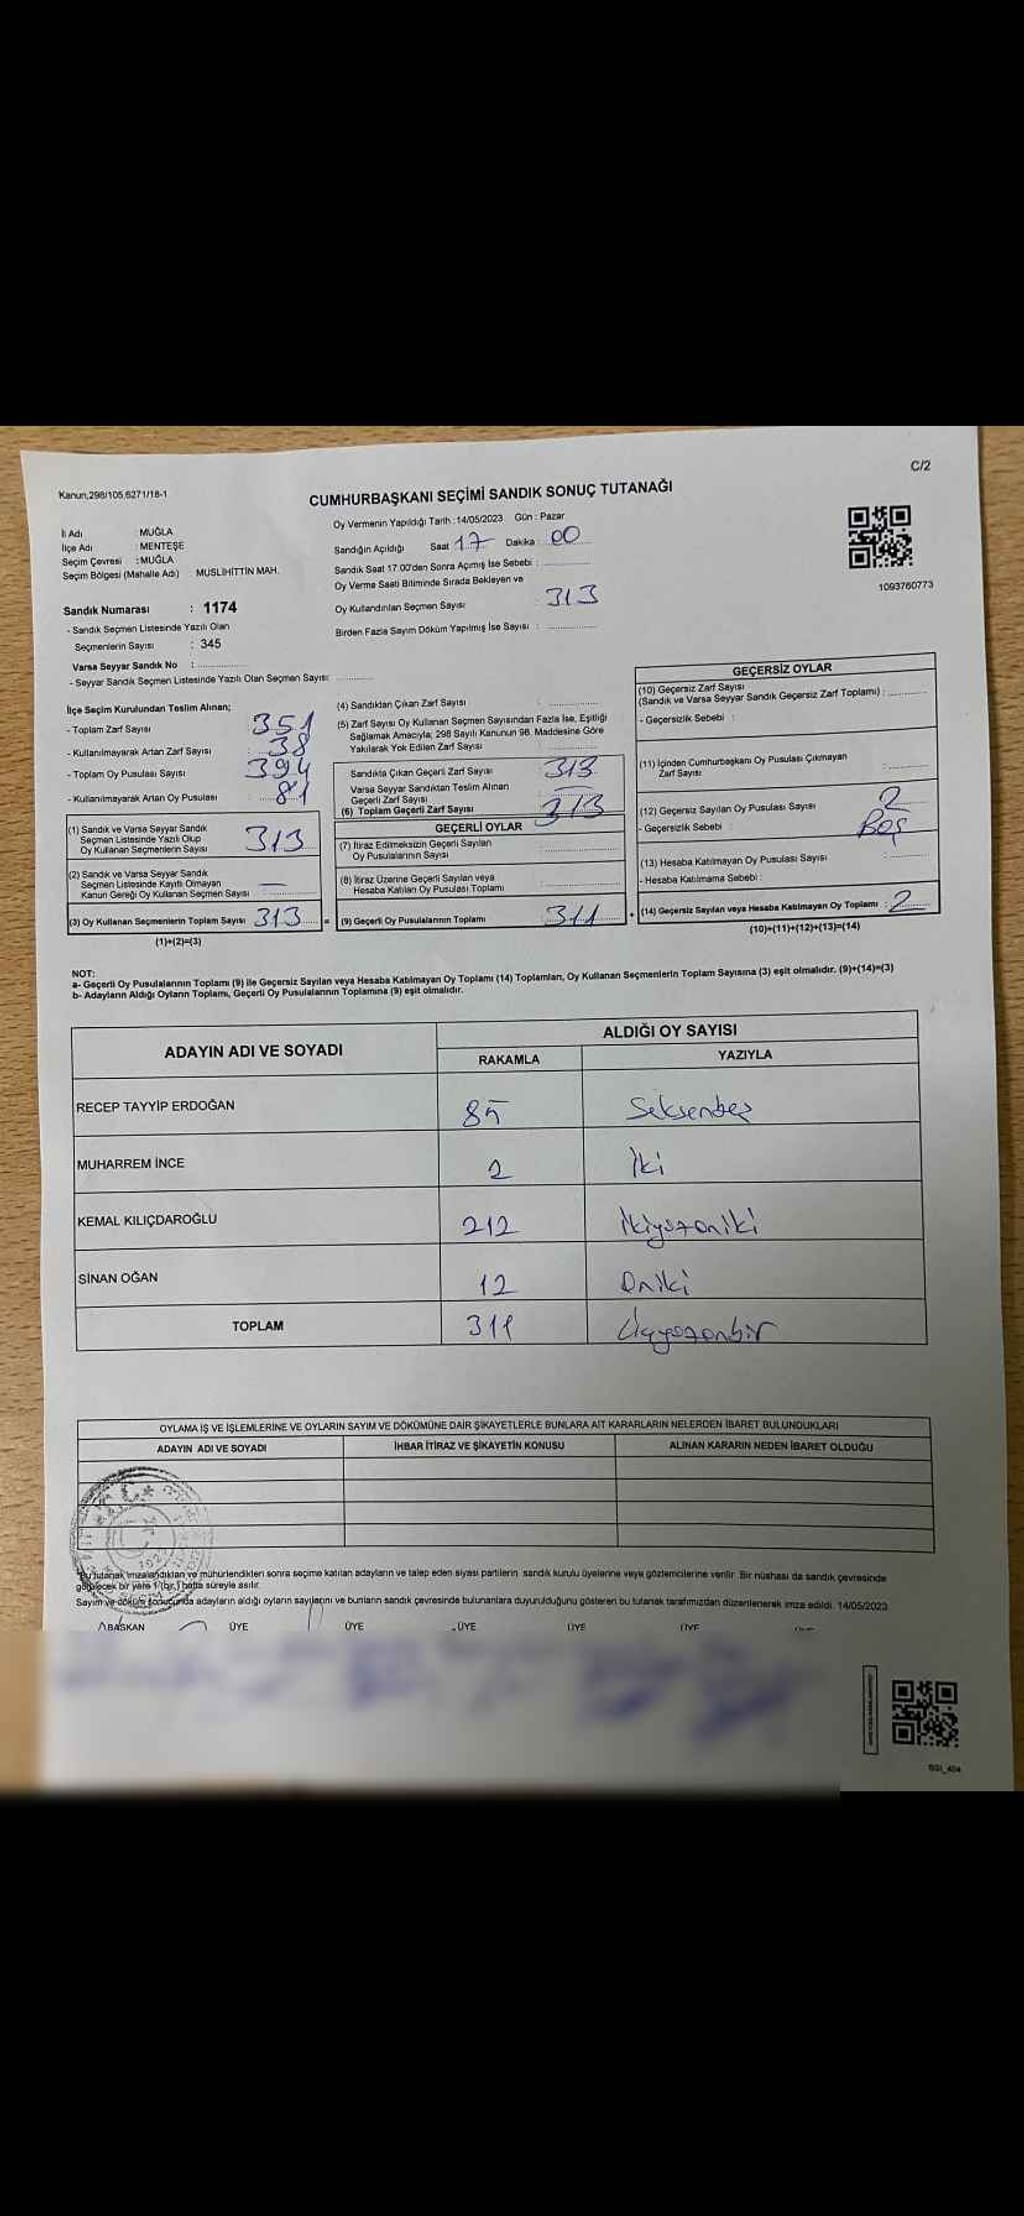 C/2
Kanun,298/105,6271/18-1
CUMHURBAŞKANI SEÇİMİ SANDIK SONUÇ TUTANAĞI
İl Adı : MUĞLA
İlçe Adı : MENTEŞE
Seçim Çevresi : MUĞLA
Seçim Bölgesi (Mahalle Adı) : MUSLİHİTTİN MAH.
Sandık Numarası : 1174
- Sandık Seçmen Listesinde Yazılı Olan
Seçmenlerin Sayısı : 345
Varsa Seyyar Sandık No :
- Seyyar Sandık Seçmen Listesinde Yazılı Olan Seçmen Sayısı:
Oy Vermenin Yapıldığı Tarih :14/05/2023 Gün : Pazar
Sandığın Açıldığı Saat 17 Dakika : 00
Sandık Saat 17.00'den Sonra Açımış İse Sebebi :
Oy Verme Saati Bitiminde Sırada Bekleyen ve
Oy Kullandırılan Seçmen Sayısı : 313
Birden Fazla Sayım Döküm Yapılmış İse Sayısı :
1093760773
İlçe Seçim Kurulundan Teslim Alınan;
- Toplam Zarf Sayısı : 351
- Kullanılmayarak Artan Zarf Sayısı : 38
- Toplam Oy Pusulası Sayısı : 394
- Kullanılmayarak Artan Oy Pusulası : 81
(1) Sandık ve Varsa Seyyar Sandık
Seçmen Listesinde Yazılı Olup
Oy Kullanan Seçmenlerin Sayısı 313
(2) Sandık ve Varsa Seyyar Sandık
Seçmen Listesinde Kayıtlı Olmayan
Kanun Gereği Oy Kullanan Seçmen Sayısı : —
(3) Oy Kullanan Seçmenlerin Toplam Sayısı : 313 =
(1)+(2)=(3)
(4) Sandıktan Çıkan Zarf Sayısı :
(5) Zarf Sayısı Oy Kullanan Seçmen Sayısından Fazla İse, Eşitliği
Sağlamak Amacıyla; 298 Sayılı Kanunun 98. Maddesine Göre
Yakılarak Yok Edilen Zarf Sayısı :
Sandıkta Çıkan Geçerli Zarf Sayısı : 313
Varsa Seyyar Sandıktan Teslim Alınan
Geçerli Zarf Sayısı : —
(6) Toplam Geçerli Zarf Sayısı : 313
GEÇERLİ OYLAR
(7) İtiraz Edilmeksizin Geçerli Sayılan
Oy Pusulalarının Sayısı :
(8) İtiraz Üzerine Geçerli Sayılan veya
Hesaba Katılan Oy Pusulası Toplamı :
(9) Geçerli Oy Pusulalarının Toplamı : 311 +
GEÇERSİZ OYLAR
(10) Geçersiz Zarf Sayısı
(Sandık ve Varsa Seyyar Sandık Geçersiz Zarf Toplamı) :
- Geçersizlik Sebebi :
(11) İçinden Cumhurbaşkanı Oy Pusulası Çıkmayan
Zarf Sayısı :
(12) Geçersiz Sayılan Oy Pusulası Sayısı : 2
- Geçersizlik Sebebi : Boş
(13) Hesaba Katılmayan Oy Pusulası Sayısı :
- Hesaba Katılmama Sebebi :
(14) Geçersiz Sayılan veya Hesaba Katılmayan Oy Toplamı : 2
(10)+(11)+(12)+(13)=(14)
NOT:
a- Geçerli Oy Pusulalarının Toplamı (9) ile Geçersiz Sayılan veya Hesaba Katılmayan Oy Toplamı (14) Toplamları, Oy Kullanan Seçmenlerin Toplam Sayısına (3) eşit olmalıdır. (9)+(14)=(3)
b- Adayların Aldığı Oyların Toplamı, Geçerli Oy Pusulalarının Toplamına (9) eşit olmalıdır.
ADAYIN ADI VE SOYADI ALDIĞI OY SAYISI
RAKAMLA YAZIYLA
RECEP TAYYİP ERDOĞAN 85 Seksenbeş
MUHARREM İNCE 2 İki
KEMAL KILIÇDAROĞLU 212 İkiyüzoniki
SİNAN OĞAN 12 Oniki
TOPLAM 311 Üçyüzonbir
OYLAMA İŞ VE İŞLEMLERİNE VE OYLARIN SAYIM VE DÖKÜMÜNE DAİR ŞİKAYETLERLE BUNLARA AİT KARARLARIN NELERDEN İBARET BULUNDUKLARI
ADAYIN ADI VE SOYADI İHBAR İTİRAZ VE ŞİKAYETİN KONUSU ALINAN KARARIN NEDEN İBARET OLDUĞU
Bu tutanak imzalandıktan ve mühürlendikten sonra seçime katılan adayların ve talep eden siyasi partilerin sandık kurulu üyelerine veya gözlemcilerine verilir. Bir nüshası da sandık çevresinde
görülecek bir yere 1 (bir) hafta süreyle asılır.
Sayım ve döküm sonucunda adayların aldığı oyların sayılarını ve bunların sandık çevresinde bulunanlara duyurulduğunu gösteren bu tutanak tarafımızdan düzenlenerek imza edildi. 14/05/2023
BAŞKAN ÜYE ÜYE ÜYE ÜYE ÜYE